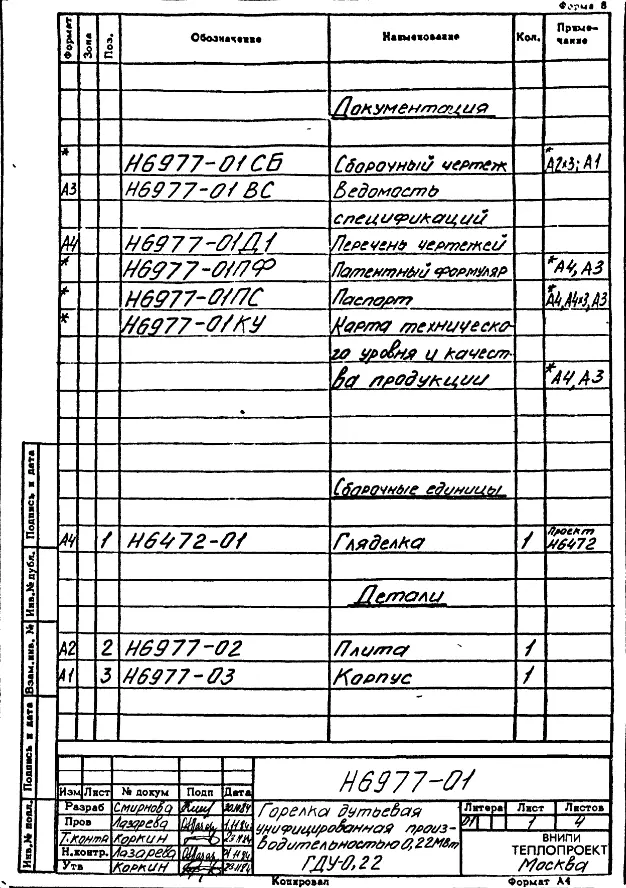 Форма 8
Формат Зона Поз. Обозначение Наименование Кол. Приме-
чание
Документация
* Н6977-01 СБ Сборочный чертеж *А2х3; А1
А3 Н6977-01 ВС Ведомость
спецификаций
А4 Н6977-01Д1 Перечень чертежей
* Н6977-01ПФ Патентный формуляр *А4, А3
* Н6977-01ПС Паспорт *А4, А4х3, А3
* Н6977-01КУ Карта техническо-
го уровня и качест-
ва продукции *А4, А3
Сборочные единицы
А4 1 Н6472-01 Гляделка 1 Проект
Н6472
Детали
А2 2 Н6977-02 Плита 1
А1 3 Н6977-03 Корпус 1
Подпись и дата
Инв.№ дубл.
Взам.инв. №
Подпись и дата
Инв.№ подл.
Н6977-01
Изм Лист № докум Подп Дата
Разраб Смирнова
Пров Лазарева
Т.контр Коркин
Н.контр. Лазарева
Утв Коркин
Горелка дутьевая
унифицированная произ-
водительностью 0,22МВт
ГДУ-0,22
Литера Лист Листов
01 1 4
ВНИПИ
ТЕПЛОПРОЕКТ
Москва
Копировал Формат А4